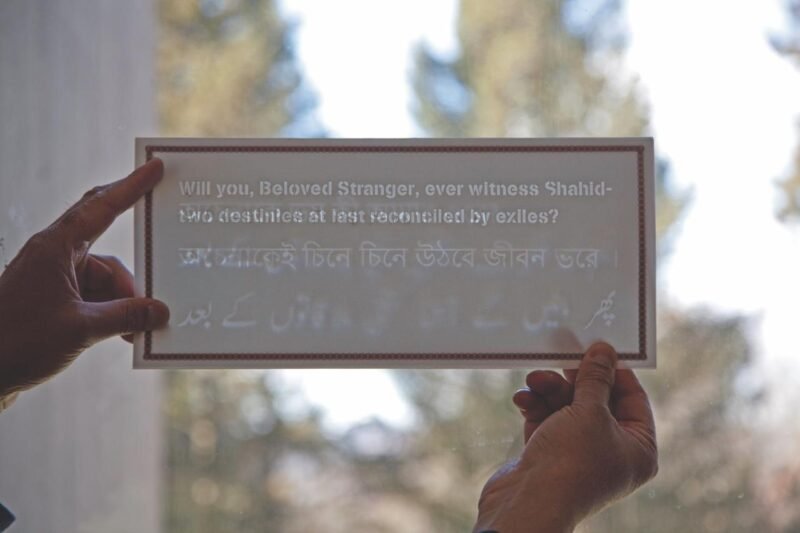 Will you, Beloved Stranger, ever witness Shahid-
two destinies at last reconciled by exiles?
অচেনাকেই চিনে চিনে উঠবে জীবন ভরে ।
پھر بنیں گے کے بعد